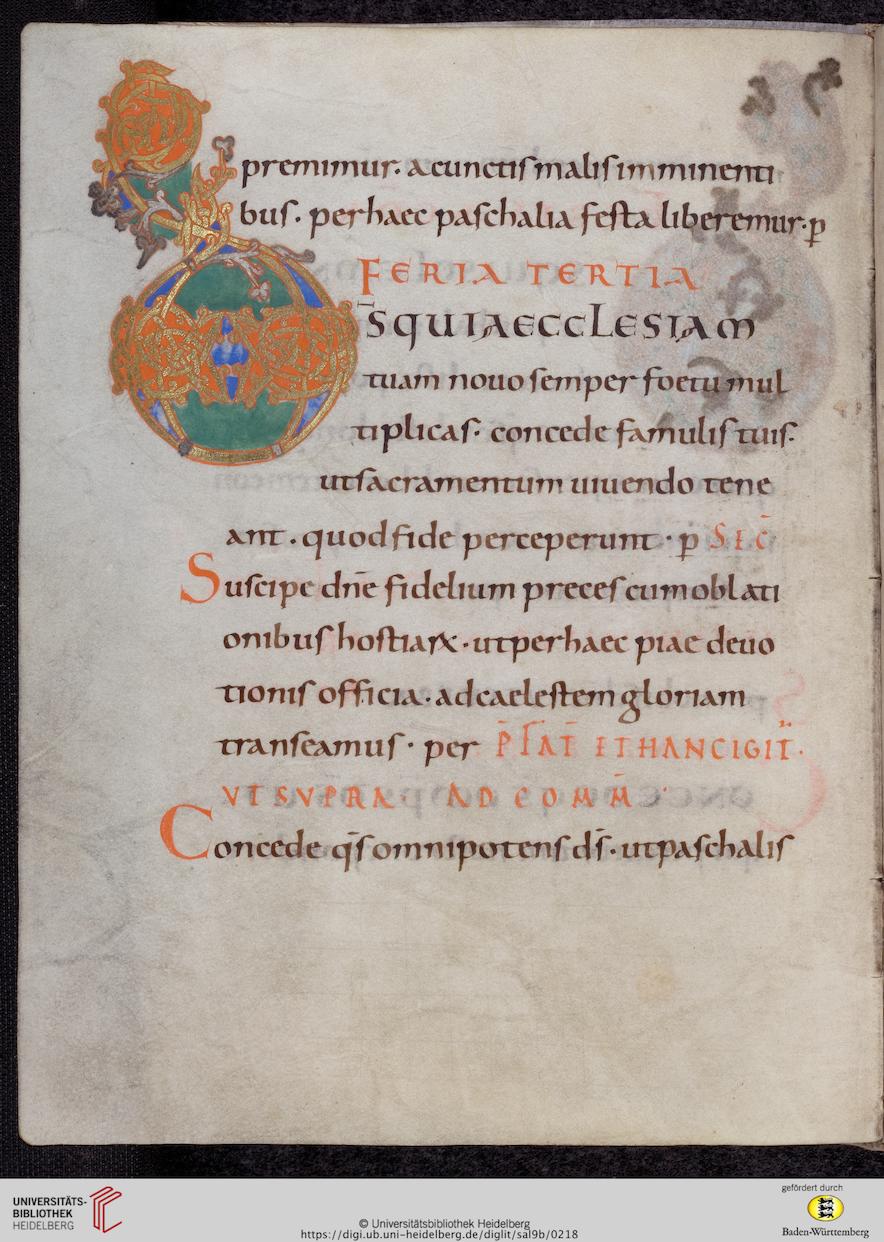 premimur· a cunctis malis imminenti
bus· per haec paschalia festa liberemur· p̱
FERIA TERTIA
D̄S QUI AECCLESIAM
tuam nouo semper foetu mul
tiplicas· concede famulis tuis·
ut sacramentum uiuendo tene
ant· quod fide perceperunt· p̱ SEC̄
Suscipe dn̄e fidelium preces cum oblati
onibus hostiarꝝ· ut per haec piae deuo
tionis officia· ad caelestem gloriam
transeamus· per P̄FAT̄ ET HANC IGIT̄·
UT SUPRA· AD COMM̄·
Concede q̄s omnipotens d̄s· ut paschalis
UNIVERSITÄTS-
BIBLIOTHEK
HEIDELBERG
© Universitätsbibliothek Heidelberg
https://digi.ub.uni-heidelberg.de/diglit/sal9b/0218
gefördert durch
Baden-Württemberg